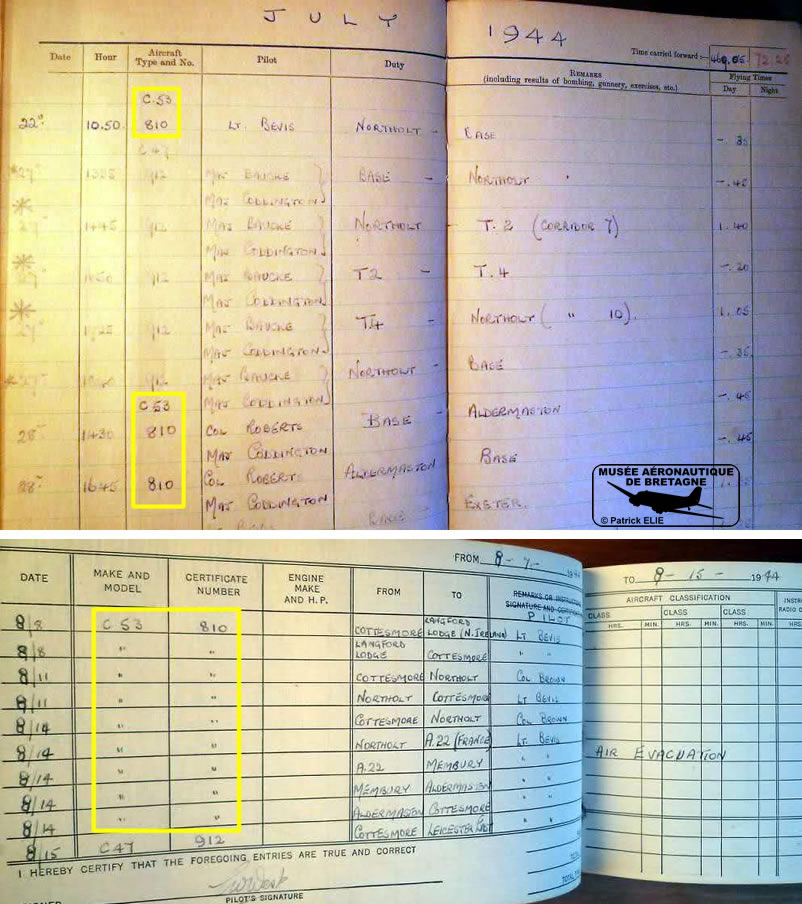 JULY 1944
Date Hour Aircraft Type and No. Pilot Duty REMARKS (including results of bombing, gunnery, exercises, etc.) Time carried forward:— Flying Times
Day Night
C.53
22ⁿ 10.50 810 LT. BEVIS NORTHOLT - BASE
C.47
912 MAJ BAUCKE BASE - NORTHOLT -.45
MAJ CODDINGTON
1445 912 MAJ BAUCKE NORTHOLT - T.2 (CORRIDOR 7) 1.40
MAJ CODDINGTON
912 MAJ BAUCKE T2 - T.4 -.20
MAJ CODDINGTON
912 MAJ BAUCKE T4 - NORTHOLT ( " 10). 1.05
MAJ CODDINGTON
912 MAJ BAUCKE NORTHOLT - BASE -.35
C 53 MAJ CODDINGTON
28 1430 810 COL ROBERTS BASE - ALDERMASTON -.45
MAJ CODDINGTON
28 1645 810 COL ROBERTS ALDERMASTON BASE -.45
MAJ CODDINGTON
BASE EXETER.
MUSÉE AÉRONAUTIQUE
DE BRETAGNE
© Patrick ELIE
FROM 8-7- 1944 TO 8-15- 1944
DATE MAKE AND MODEL CERTIFICATE NUMBER ENGINE MAKE AND H.P. FROM TO REMARKS OR INSTRUCTOR SIGNATURE AND CERTIFICATE PILOT
AIRCRAFT CLASSIFICATION
CLASS CLASS CLASS
HRS. MIN. HRS. MIN. HRS. MIN.
8/8 C 53 810 COTTESMORE LANGFORD LODGE (N. IRELAND) LT BEVIS
8/8 " " LANGFORD LODGE COTTESMORE " "
8/11 " " COTTESMORE NORTHOLT COL BROWN
8/11 " " NORTHOLT COTTESMORE LT BEVIS
8/14 " " COTTESMORE NORTHOLT COL BROWN
8/14 " " NORTHOLT A.22 (FRANCE) LT. BEVIS AIR EVACUATION
8/14 " " A.22 MEMBURY " "
8/14 " " MEMBURY ALDERMASTON " "
8/14 " " ALDERMASTON COTTESMORE " "
8/15 C47 912 COTTESMORE LEICESTER EAST " "
I HEREBY CERTIFY THAT THE FOREGOING ENTRIES ARE TRUE AND CORRECT
PILOT'S SIGNATURE